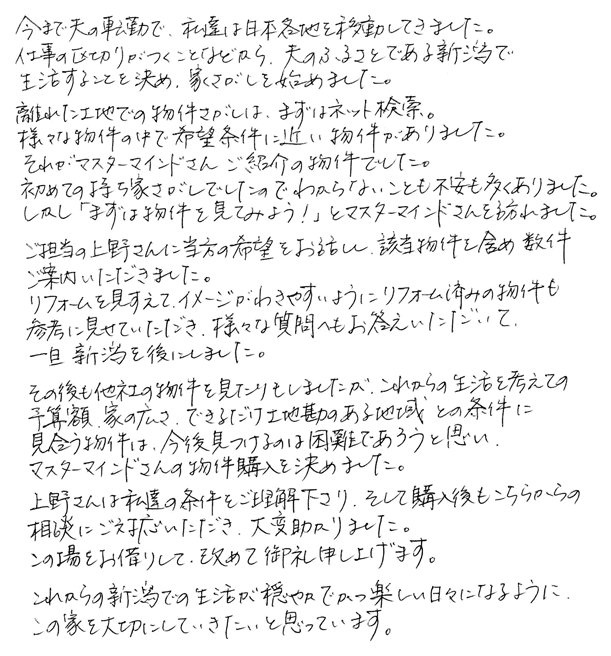 今まで夫の転勤で、私達は日本各地を移動してきました。
仕事の区切りがつくことなどから、夫のふるさとである新潟で
生活することを決め、家さがしを始めました。
離れた土地での物件さがしは、まずはネット検索。
様々な物件の中で希望条件に近い物件がありました。
それがマスターマインドさんご紹介の物件でした。
初めての持ち家さがしでしたのでわからないことも不安も多くありました。
しかし「まずは物件を見てみよう!」とマスターマインドさんを訪れました。
ご担当の上野さんに当方の希望をお話しし、該当物件を含め数件
ご案内いただきました。
リフォームを見すえて、イメージがわきやすいようにリフォーム済みの物件も
参考に見せていただき、様々な質問へもお答えいただいて、
一旦新潟を後にしました。
その後も他社の物件を見たりもしましたが、これからの生活を考えての
予算額、家の広さ、できるだけ土地勘のある地域との条件に
見合う物件は、今後見つけるのは困難であろうと思い、
マスターマインドさんの物件購入を決めました。
上野さんは私達の条件をご理解下さり、そして購入後もこちらからの
相談にご対応いただき、大変助かりました。
この場をお借りして、改めて御礼申し上げます。
これからの新潟での生活が穏やかでかつ楽しい日々になるように、
この家を大切にしていきたいと思っています。